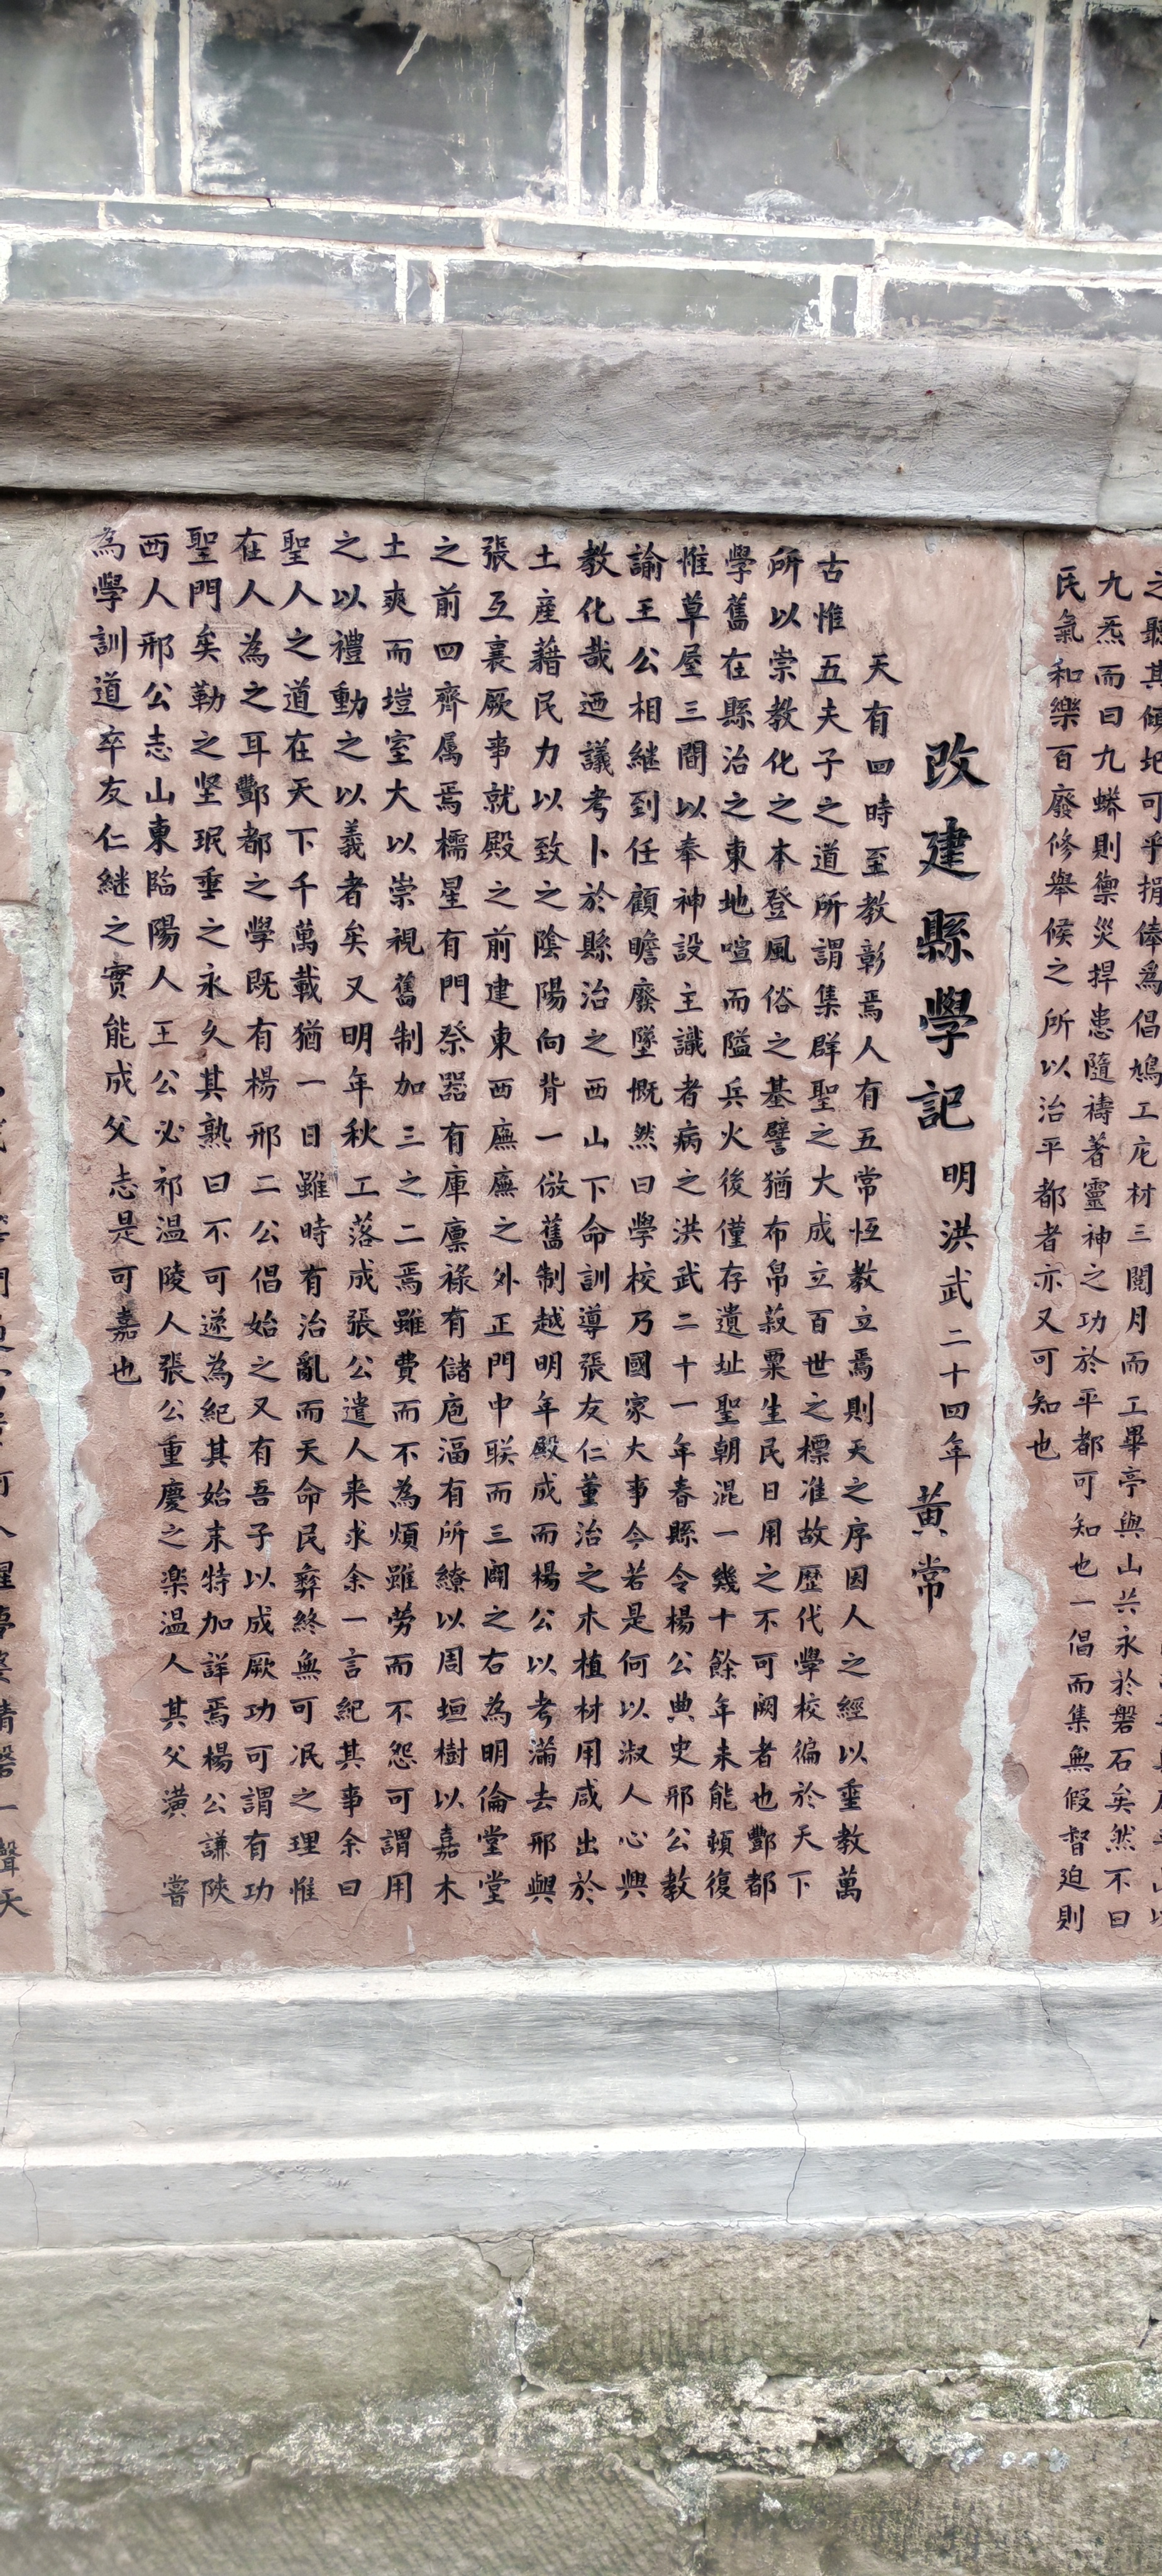 九炁而曰九蟒則禦災捍患隨禱著靈神之功於平都可知也一倡而集無假督迫則
民氣和樂百廢修舉候之所以治平都者亦又可知也
改建縣學記 明洪武二十四年 黄常
天有四時至教彰焉人有五常恆教立焉則天之序因人之經以垂教萬
古惟五夫子之道所謂集群聖之大成立百世之標准故歷代學校徧於天下
所以崇教化之本登風俗之基譬猶布帛菽粟生民日用之不可阙者也酆都
學舊在縣治之東地喧而隘兵火後僅存遺址聖朝混一幾十餘年未能頓復
惟草屋三間以奉神設主識者病之洪武二十一年春縣令楊公典史邢公教
諭王公相継到任顧瞻廢墜慨然曰學校乃國家大事今若是何以淑人心興
教化哉迺議考卜於縣治之西山下命訓導張友仁董治之木植材用咸出於
土産藉民力以致之陰陽向背一倣舊制越明年殿成而楊公以考滿去邢與
張互襄厥事就殿之前建東西廡廡之外正門中联而三闢之右為明倫堂堂
之前四齊属焉櫺星有門祭器有庫廩祿有儲庖湢有所繚以周垣樹以嘉木
土爽而塏室大以崇視舊制加三之二焉雖費而不為煩雖劳而不怨可謂用
之以禮動之以義者矣又明年秋工落成張公遣人来求余一言紀其事余曰
聖人之道在天下千萬載猶一日雖時有治亂而天命民彝終無可泯之理惟
在人為之耳酆都之學既有楊邢二公倡始之又有吾子以成厥功可謂有功
聖門矣勒之坚珉垂之永久其熟曰不可遂為紀其始末特加詳焉楊公謙陝
西人邢公志山東臨陽人王公必祁温陵人張公重慶之楽温人其父潢嘗
為學訓道卒友仁継之實能成父志是可嘉也